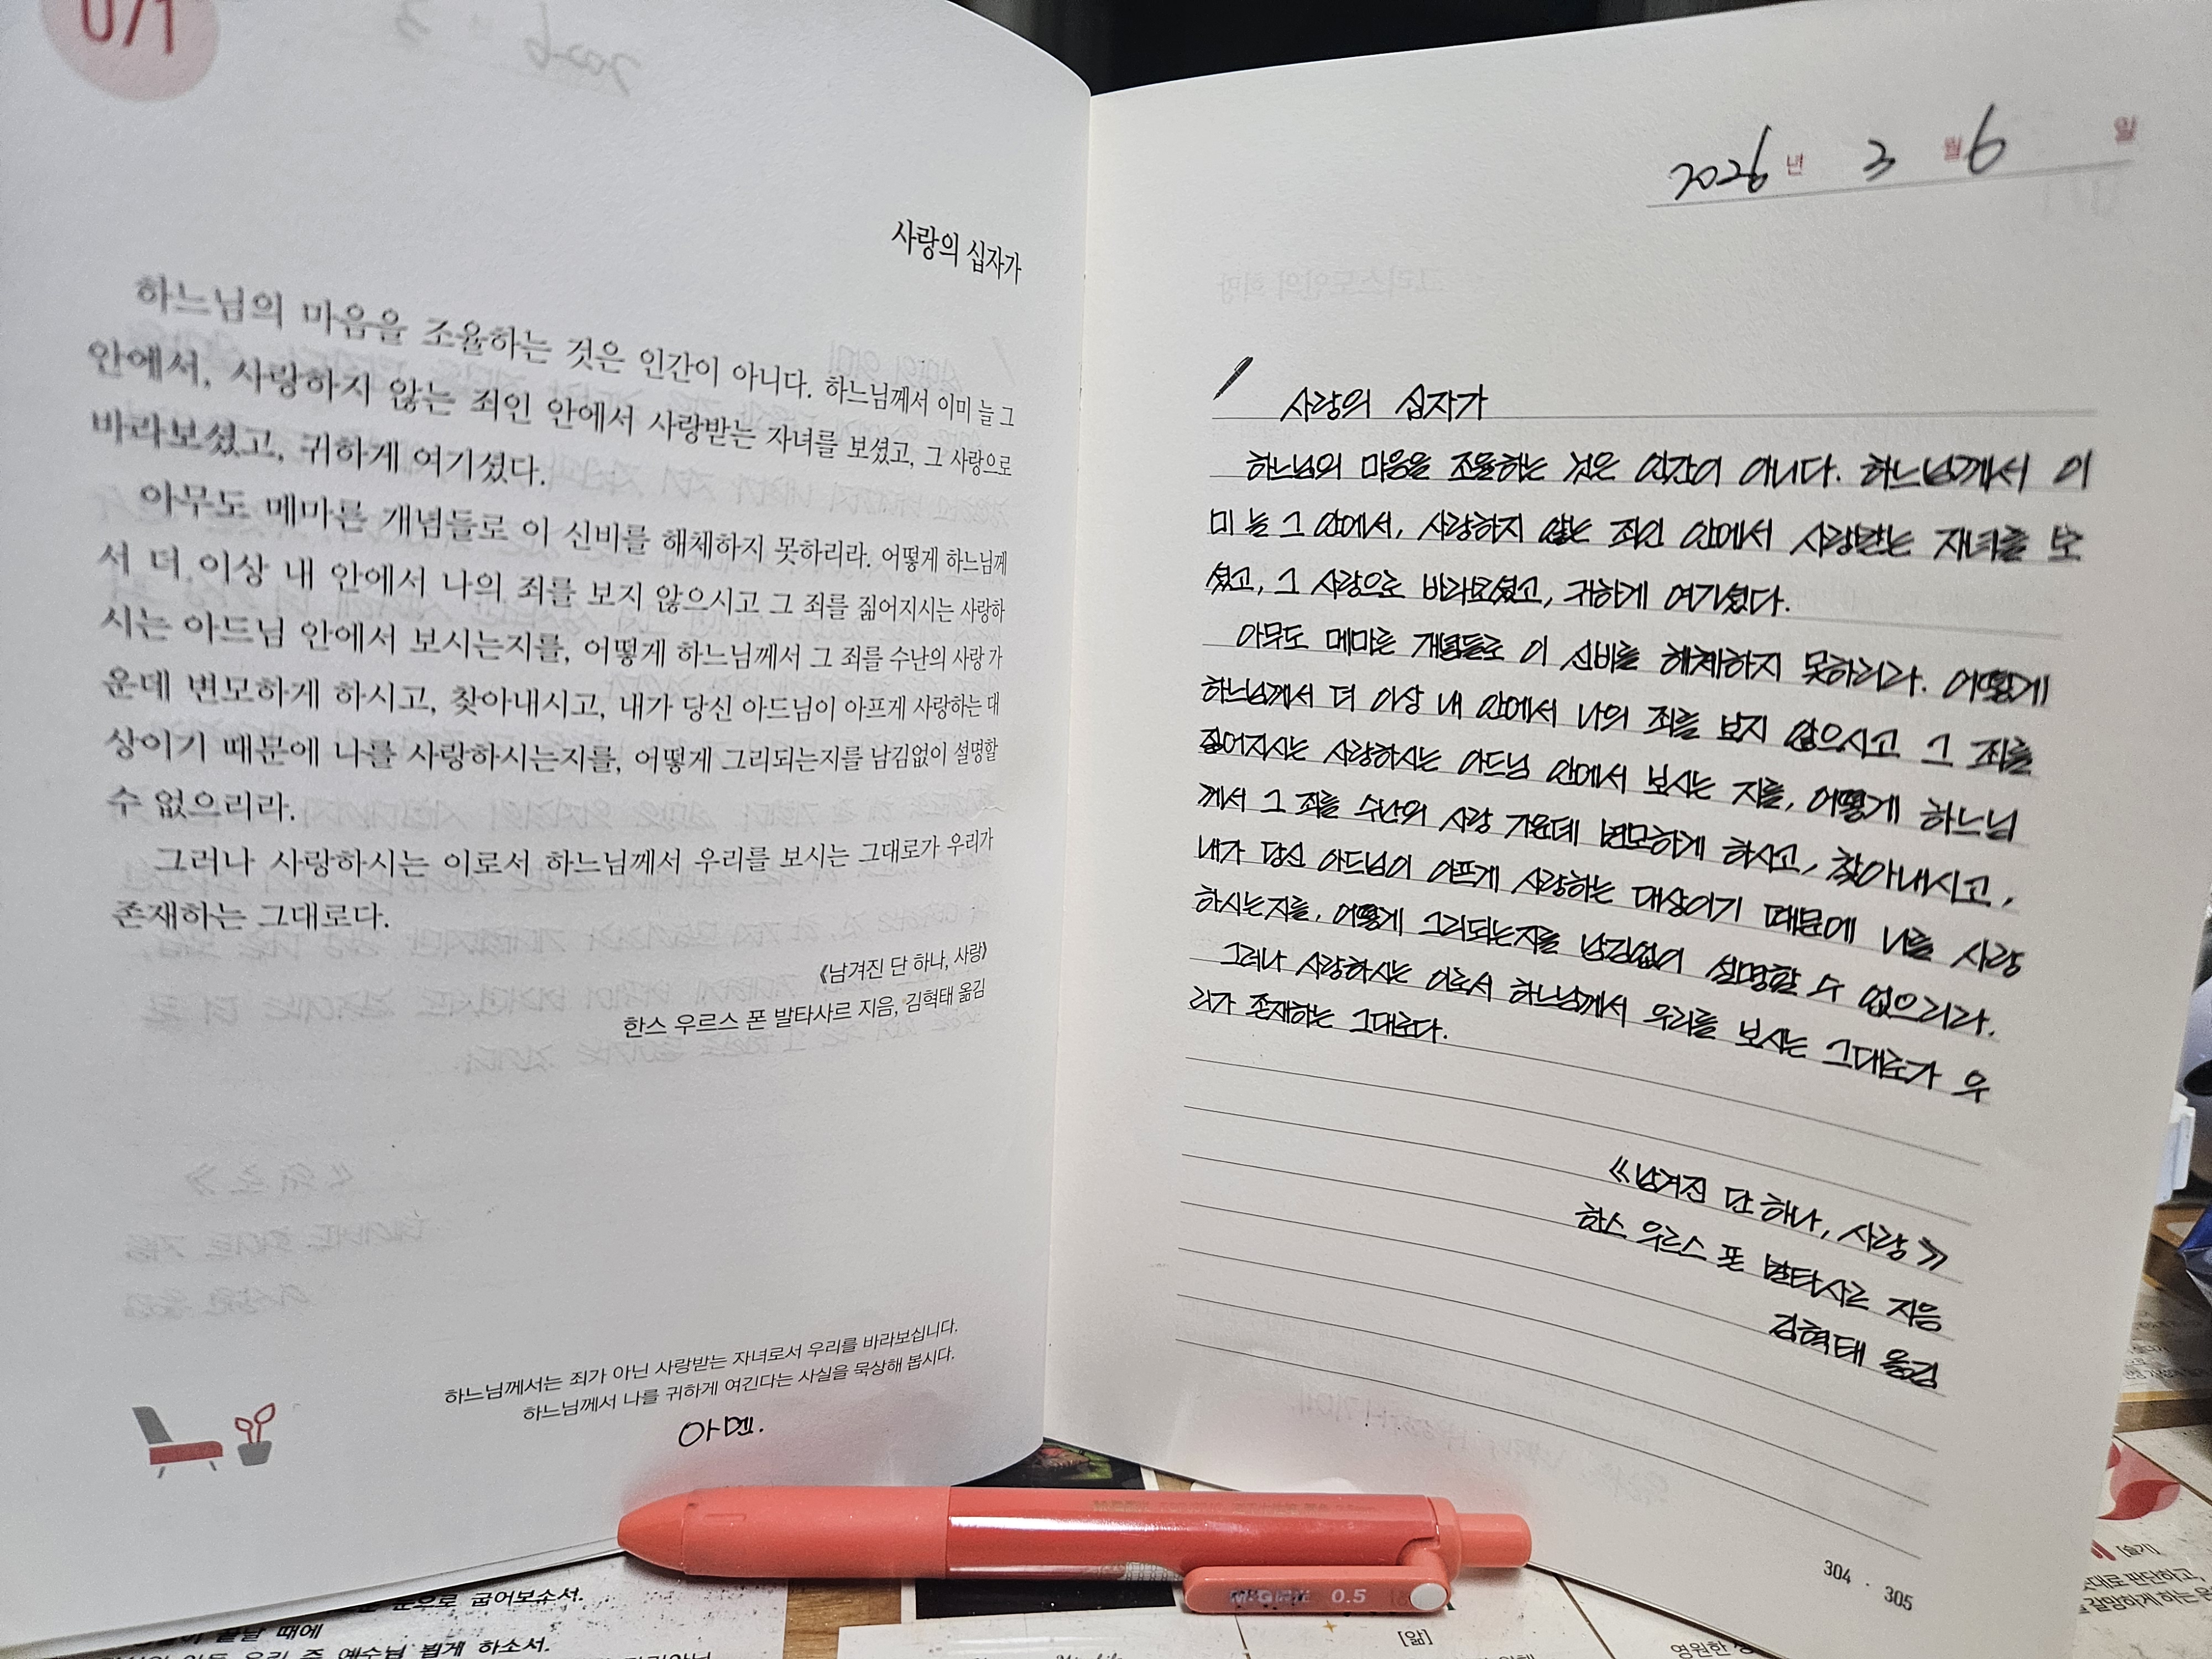 071
사랑의 십자가
하느님의 마음을 조율하는 것은 인간이 아니다. 하느님께서 이미 늘 그
안에서, 사랑하지 않는 죄인 안에서 사랑받는 자녀를 보셨고, 그 사랑으로
바라보셨고, 귀하게 여기셨다.
아무도 메마른 개념들로 이 신비를 해체하지 못하리라. 어떻게 하느님께
서 더 이상 내 안에서 나의 죄를 보지 않으시고 그 죄를 짊어지시는 사랑하
시는 아드님 안에서 보시는지를, 어떻게 하느님께서 그 죄를 수난의 사랑 가
운데 변모하게 하시고, 찾아내시고, 내가 당신 아드님이 아프게 사랑하는 대
상이기 때문에 나를 사랑하시는지를, 어떻게 그리되는지를 남김없이 설명할
수 없으리라.
그러나 사랑하시는 이로서 하느님께서 우리를 보시는 그대로가 우리가
존재하는 그대로다.
《남겨진 단 하나, 사랑》
한스 우르스 폰 발타사르 지음, 김혁태 옮김
하느님께서는 죄가 아닌 사랑받는 자녀로서 우리를 바라보십니다.
하느님께서 나를 귀하게 여긴다는 사실을 묵상해 봅시다.
아멘.
2026년 3월 6일
사랑의 십자가
하느님의 마음을 조율하는 것은 인간이 아니다. 하느님께서 이
미 늘 그 안에서, 사랑하지 않는 죄인 안에서 사랑받는 자녀를 보
셨고, 그 사랑으로 바라보셨고, 귀하게 여기셨다.
아무도 메마른 개념들로 이 신비를 해체하지 못하리라. 어떻게
하느님께서 더 이상 내 안에서 나의 죄를 보지 않으시고 그 죄를
짊어지시는 사랑하시는 아드님 안에서 보시는 지를, 어떻게 하느님
께서 그 죄를 수난의 사랑 가운데 변모하게 하시고, 찾아내시고,
내가 당신 아드님이 아프게 사랑하는 대상이기 때문에 나를 사랑
하시는지를, 어떻게 그리되는지를 남김없이 설명할 수 없으리라.
그러나 사랑하시는 이로서 하느님께서 우리를 보시는 그대로가 우
리가 존재하는 그대로다.
《남겨진 단 하나, 사랑》
한스 우르스 폰 발타사르 지음
김혁태 옮김
304 · 305
M&G 0.5
눈으로 굽어보소서.
때에
예수님 뵙게 하소서.
[앎]
영원한
[슬기]
판단하고,
갈망하게 하는